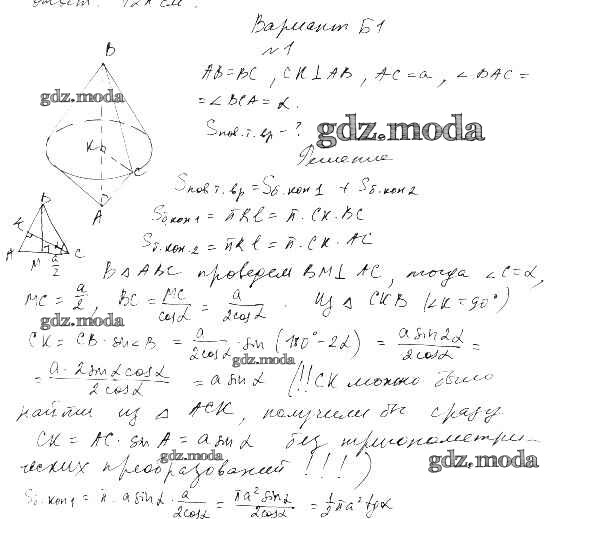 Ответ: 12π см.
Вариант Б1
№1
B
AB=BC, CK⊥AB, AC=a, ∠BAC=
=∠BCA=α.
Sпов.т.вр - ?
gdz.moda
gdz.moda
Решение
K
C
A
Sпов.т.вр = Sб.кон1 + Sб.кон2
Sб.кон1 = πRl = π·CK·BC
Sб.кон.2 = πRl = π·CK·AC
B
K
A M a/2 C
В △ABC проведем BM⊥AC, тогда ∠C=α,
MC = a/2, BC = MC/cosα = a/2cosα. Из △CKB (∠K=90°)
gdz.moda
CK = CB·sin∠B = a/2cosα · sin(180°-2α) = a sin2α/2cosα =
gdz.moda
= a·2sinαcosα/2cosα = a sinα (!! CK можно было
найти из △ACK, получили бы сразу
CK = AC·sinA = a sinα без тригонометри-
ческих преобразований!!!)
gdz.moda
gdz.moda
Sб.кон1 = π·a sinα·a/2cosα = πa² sinα/2cosα = 1/2 πa² tgα